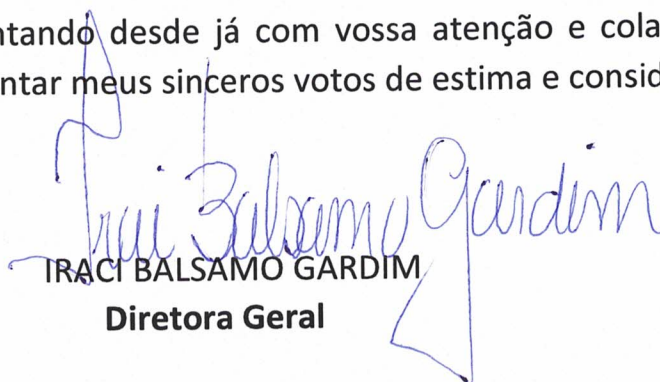 ntando desde já com vossa atenção e cola
ntar meus sinceros votos de estima e consid
Iraci Balsamo Gardim
IRACI BALSAMO GARDIM
Diretora Geral